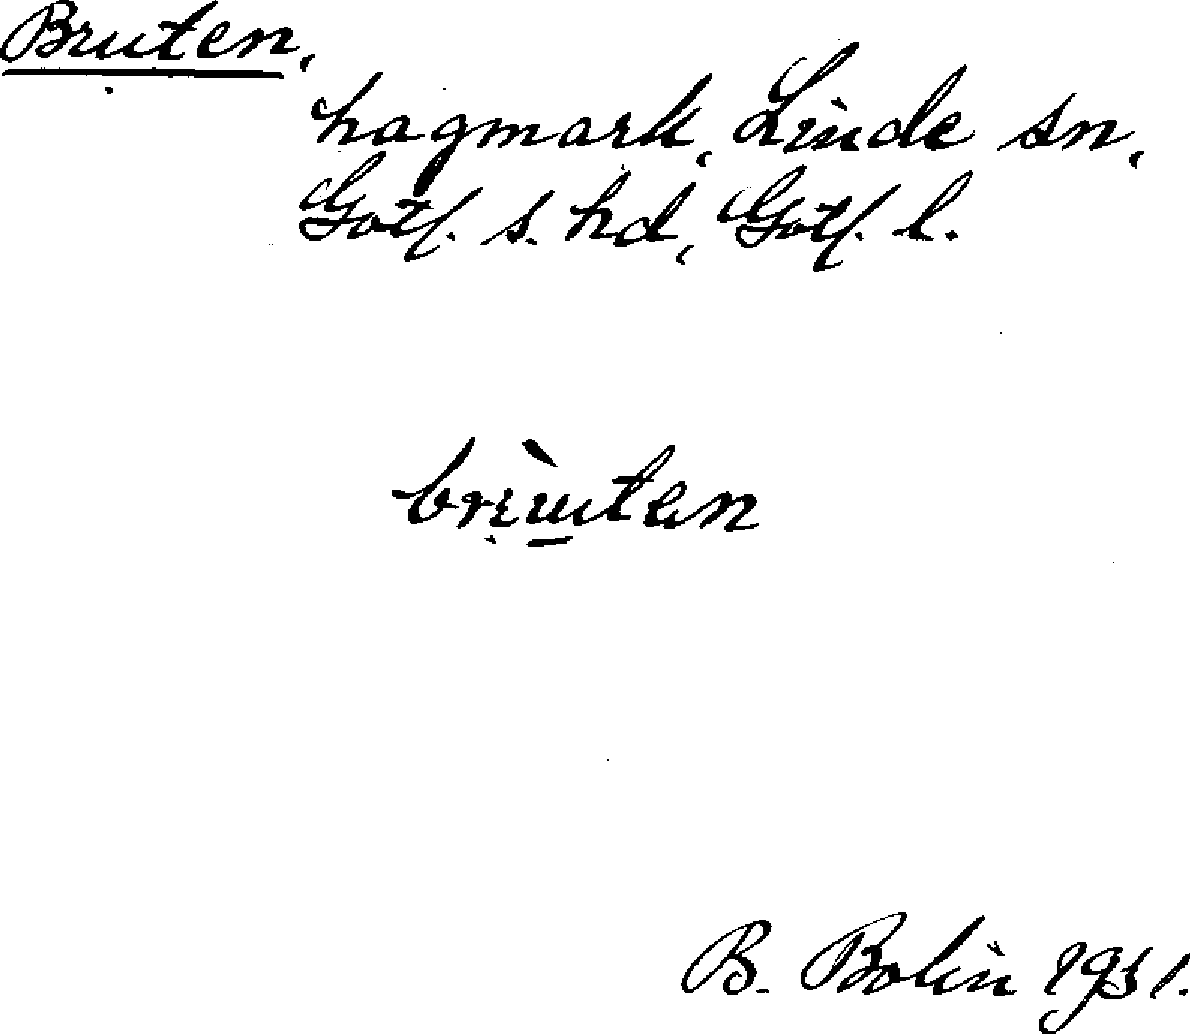 Bruten,
hagmark, Linde sn,
Gotl. s. hd, Gotl. l.
B. Bolin 1931.